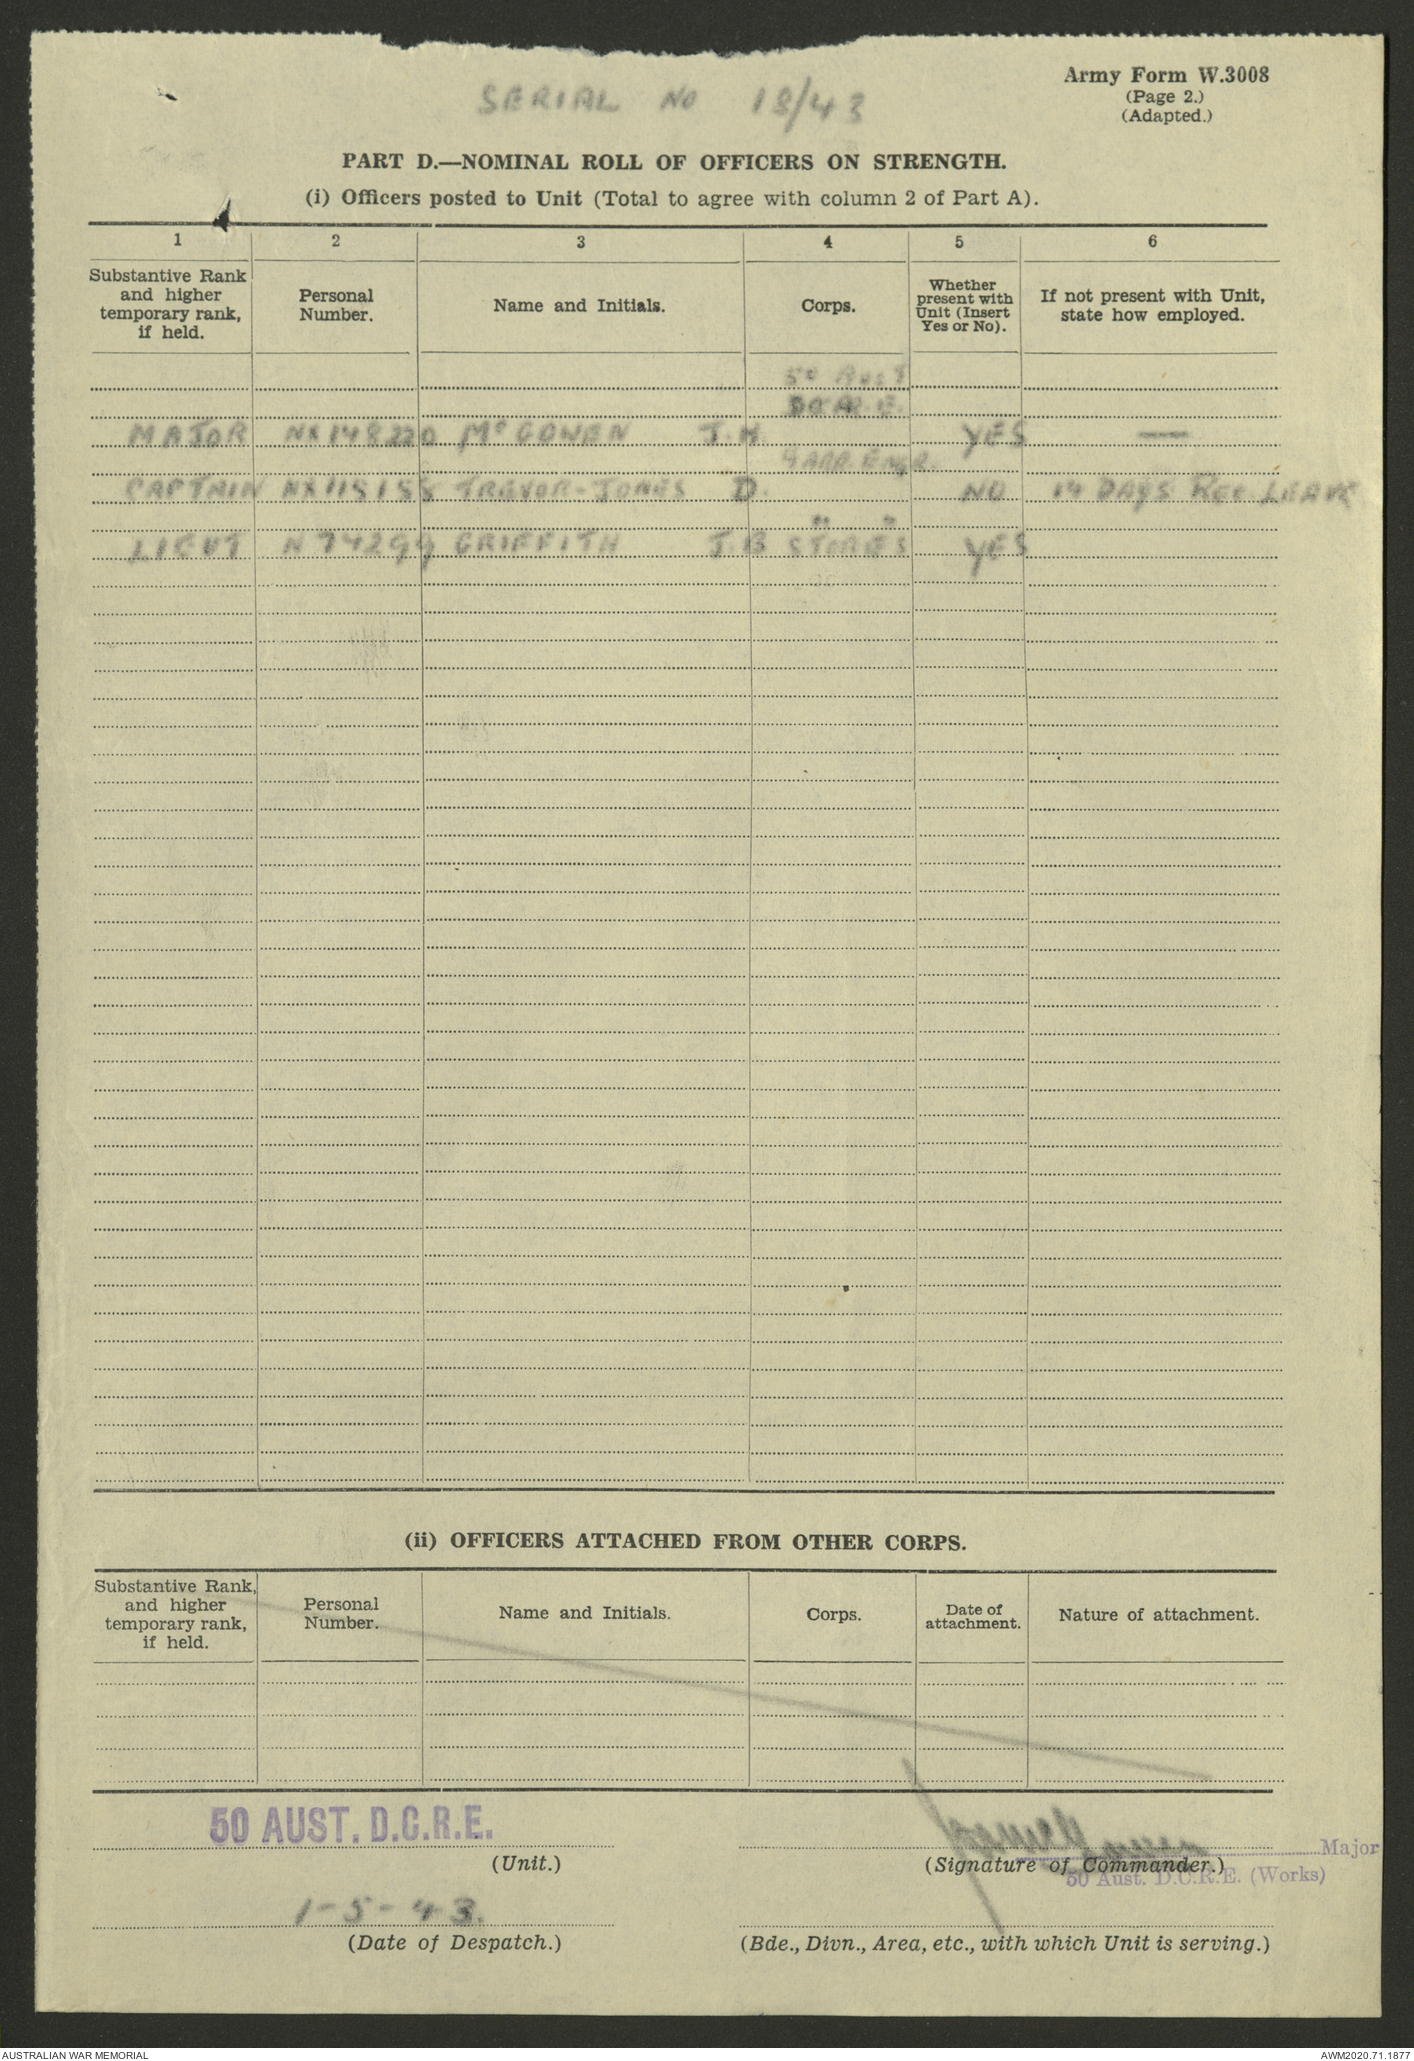 SERIAL No 18/43
Army Form W.3008
(Page 2.)
(Adapted.)
PART D.—NOMINAL ROLL OF OFFICERS ON STRENGTH.
(i) Officers posted to Unit (Total to agree with column 2 of Part A).
1 2 3 4 5 6
Substantive Rank and higher temporary rank, if held.
Personal Number.
Name and Initials.
Corps.
Whether present with Unit (Insert Yes or No).
If not present with Unit, state how employed.
50 AUST
MAJOR NX148220 McGOWEN J.H. YES —
GARR. ENGR.
CAPTAIN NX115155 TREVOR-JONES D. NO 14 DAYS REC. LEAVE
" "
LIEUT N74299 GRIFFITH J.B STORES YES
(ii) OFFICERS ATTACHED FROM OTHER CORPS.
Substantive Rank, and higher temporary rank, if held.
Personal Number.
Name and Initials.
Corps.
Date of attachment.
Nature of attachment.
50 AUST. D.C.R.E.
(Unit.)
Major
(Signature of Commander.)
50 Aust. D.C.R.E. (Works)
1-5-43.
(Date of Despatch.)
(Bde., Divn., Area, etc., with which Unit is serving.)
AUSTRALIAN WAR MEMORIAL
AWM2020.71.1877